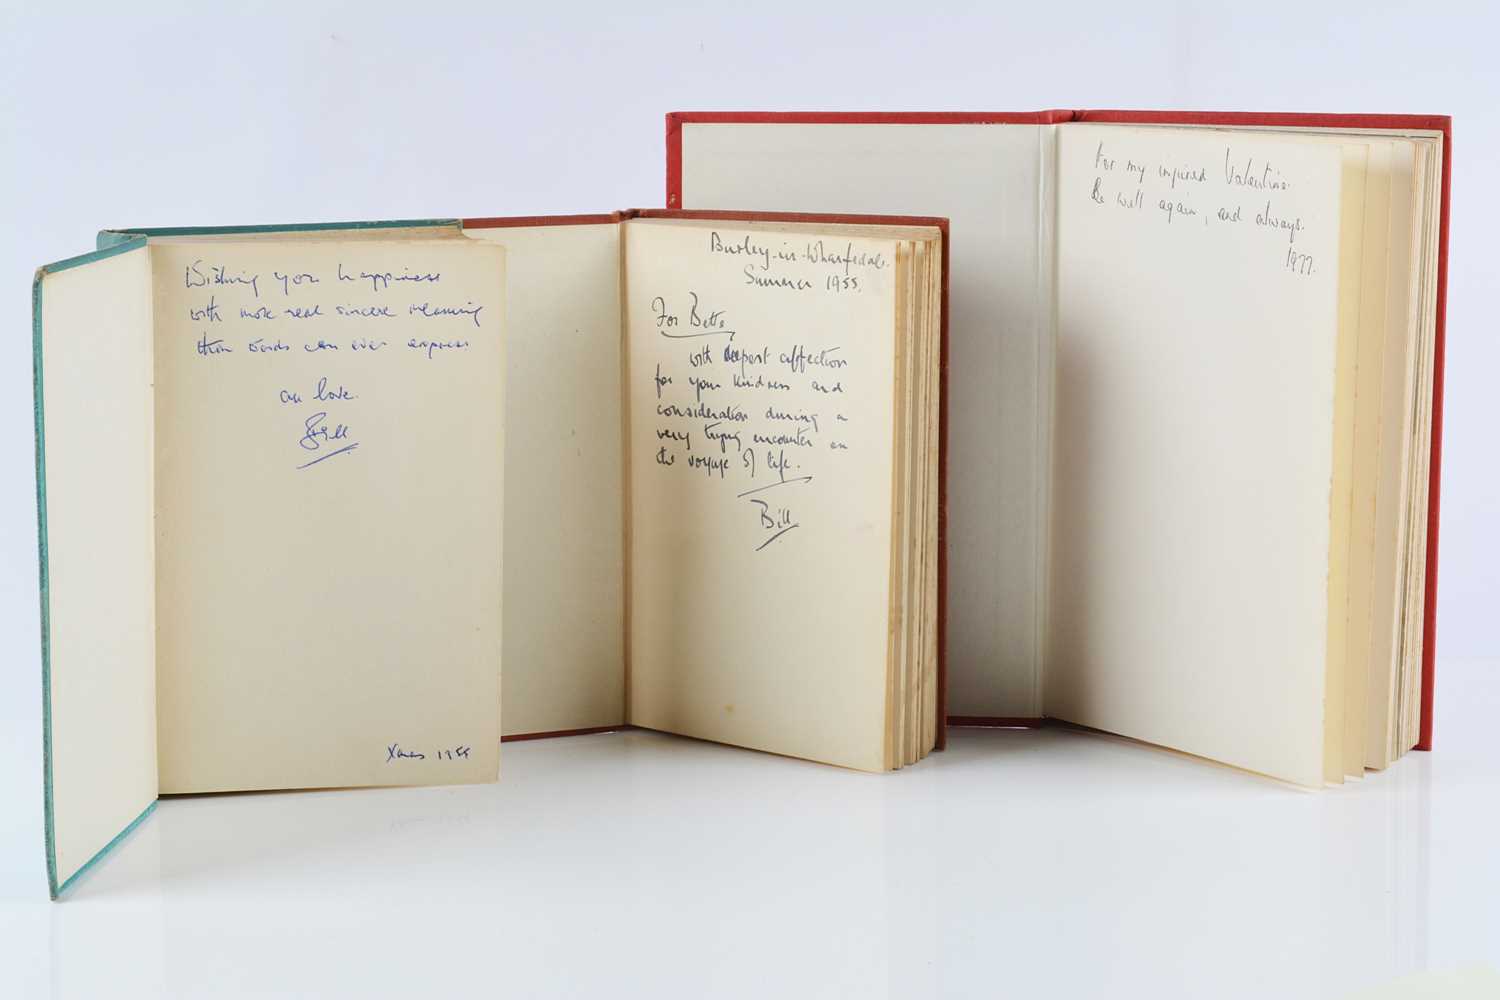 Wishing you happiness
with more real sincere meaning
than words can ever express
all love.
Bill
Xmas 1955
Burley-in-Wharfedale.
Summer 1955.
For Bette
with deepest affection
for your kindness and
consideration during a
very trying encounter on
the voyage of life.
Bill
For my injured Valentine.
Be well again, and always.
1977.